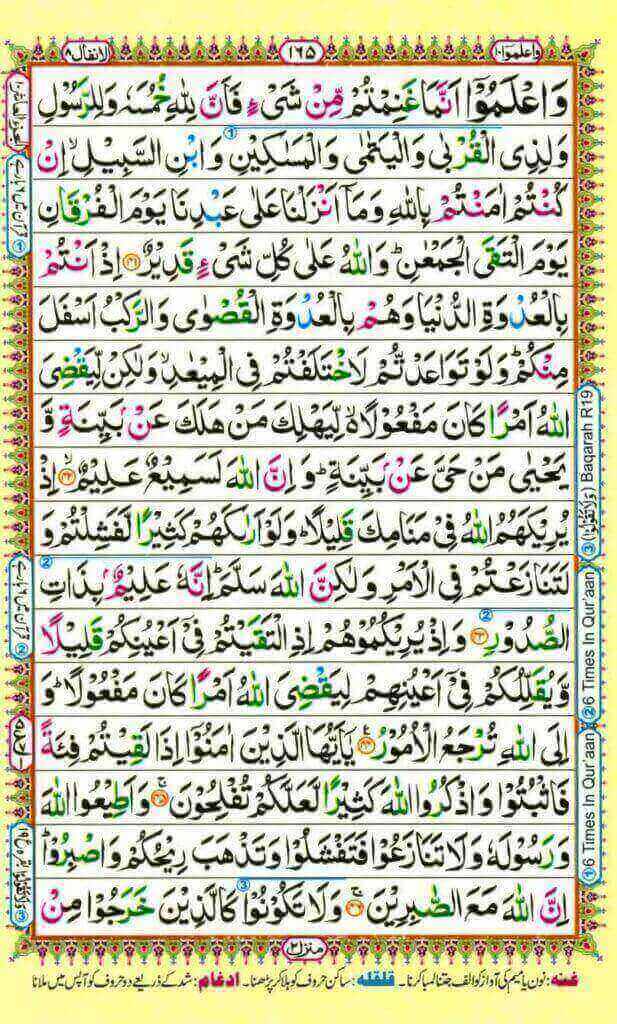 الانفال ٨
١٦٥
واعلموا ١٠
وَاعْلَمُوْۤا اَنَّمَا غَنِمْتُمْ مِّنْ شَیْءٍ فَاَنَّ لِلّٰهِ خُمُسَهٗ وَلِلرَّسُوْلِ
وَلِذِی الْقُرْبٰی وَالْیَتٰمٰی وَالْمَسٰكِیْنِ وَابْنِ السَّبِیْلِ ۙ اِنْ
كُنْتُمْ اٰمَنْتُمْ بِاللّٰهِ وَمَاۤ اَنْزَلْنَا عَلٰی عَبْدِنَا یَوْمَ الْفُرْقَانِ
یَوْمَ الْتَقَی الْجَمْعٰنِ ؕ وَاللّٰهُ عَلٰی كُلِّ شَیْءٍ قَدِیْرٌ ﴿۴۱﴾ اِذْ اَنْتُمْ
بِالْعُدْوَةِ الدُّنْیَا وَهُمْ بِالْعُدْوَةِ الْقُصْوٰی وَالرَّكْبُ اَسْفَلَ
مِنْكُمْ ؕ وَلَوْ تَوَاعَدْتُّمْ لَاخْتَلَفْتُمْ فِی الْمِیْعٰدِ ۙ وَلٰكِنْ لِّیَقْضِیَ
اللّٰهُ اَمْرًا كَانَ مَفْعُوْلًا ۙ۬ لِّیَهْلِكَ مَنْ هَلَكَ عَنْۢ بَیِّنَةٍ وَّ
یَحْیٰی مَنْ حَیَّ عَنْۢ بَیِّنَةٍ ؕ وَاِنَّ اللّٰهَ لَسَمِیْعٌ عَلِیْمٌ ﴿۴۲﴾ اِذْ
یُرِیْكَهُمُ اللّٰهُ فِیْ مَنَامِكَ قَلِیْلًا ؕ وَلَوْ اَرٰىكَهُمْ كَثِیْرًا لَّفَشِلْتُمْ وَ
لَتَنَازَعْتُمْ فِی الْاَمْرِ وَلٰكِنَّ اللّٰهَ سَلَّمَ ؕ اِنَّهٗ عَلِیْمٌۢ بِذَاتِ
الصُّدُوْرِ ﴿۴۳﴾ وَاِذْ یُرِیْكُمُوْهُمْ اِذِ الْتَقَیْتُمْ فِیْۤ اَعْیُنِكُمْ قَلِیْلًا
وَّیُقَلِّلُكُمْ فِیْۤ اَعْیُنِهِمْ لِیَقْضِیَ اللّٰهُ اَمْرًا كَانَ مَفْعُوْلًا ؕ وَ
اِلَی اللّٰهِ تُرْجَعُ الْاُمُوْرُ ﴿۴۴﴾ یٰۤاَیُّهَا الَّذِیْنَ اٰمَنُوْۤا اِذَا لَقِیْتُمْ فِئَةً
فَاثْبُتُوْا وَاذْكُرُوا اللّٰهَ كَثِیْرًا لَّعَلَّكُمْ تُفْلِحُوْنَ ﴿۴۵﴾ وَاَطِیْعُوا اللّٰهَ
وَرَسُوْلَهٗ وَلَا تَنَازَعُوْا فَتَفْشَلُوْا وَتَذْهَبَ رِیْحُكُمْ وَاصْبِرُوْا ؕ
اِنَّ اللّٰهَ مَعَ الصّٰبِرِیْنَ ﴿۴۶﴾ وَلَا تَكُوْنُوْا كَالَّذِیْنَ خَرَجُوْا مِنْ
① 6 Times In Qur'aan
② 6 Times In Qur'aan
③ (وَلَا تَقُوْلُوْا) Baqarah R19
منزل ٢
غنه: نون یا میم کی آواز کو الف جتنا لمبا کرنا۔ قلقله: ساکن حروف کو ہلا کر پڑھنا۔ ادغام: شد کے ذریعے دو حروف کو آپس میں ملانا